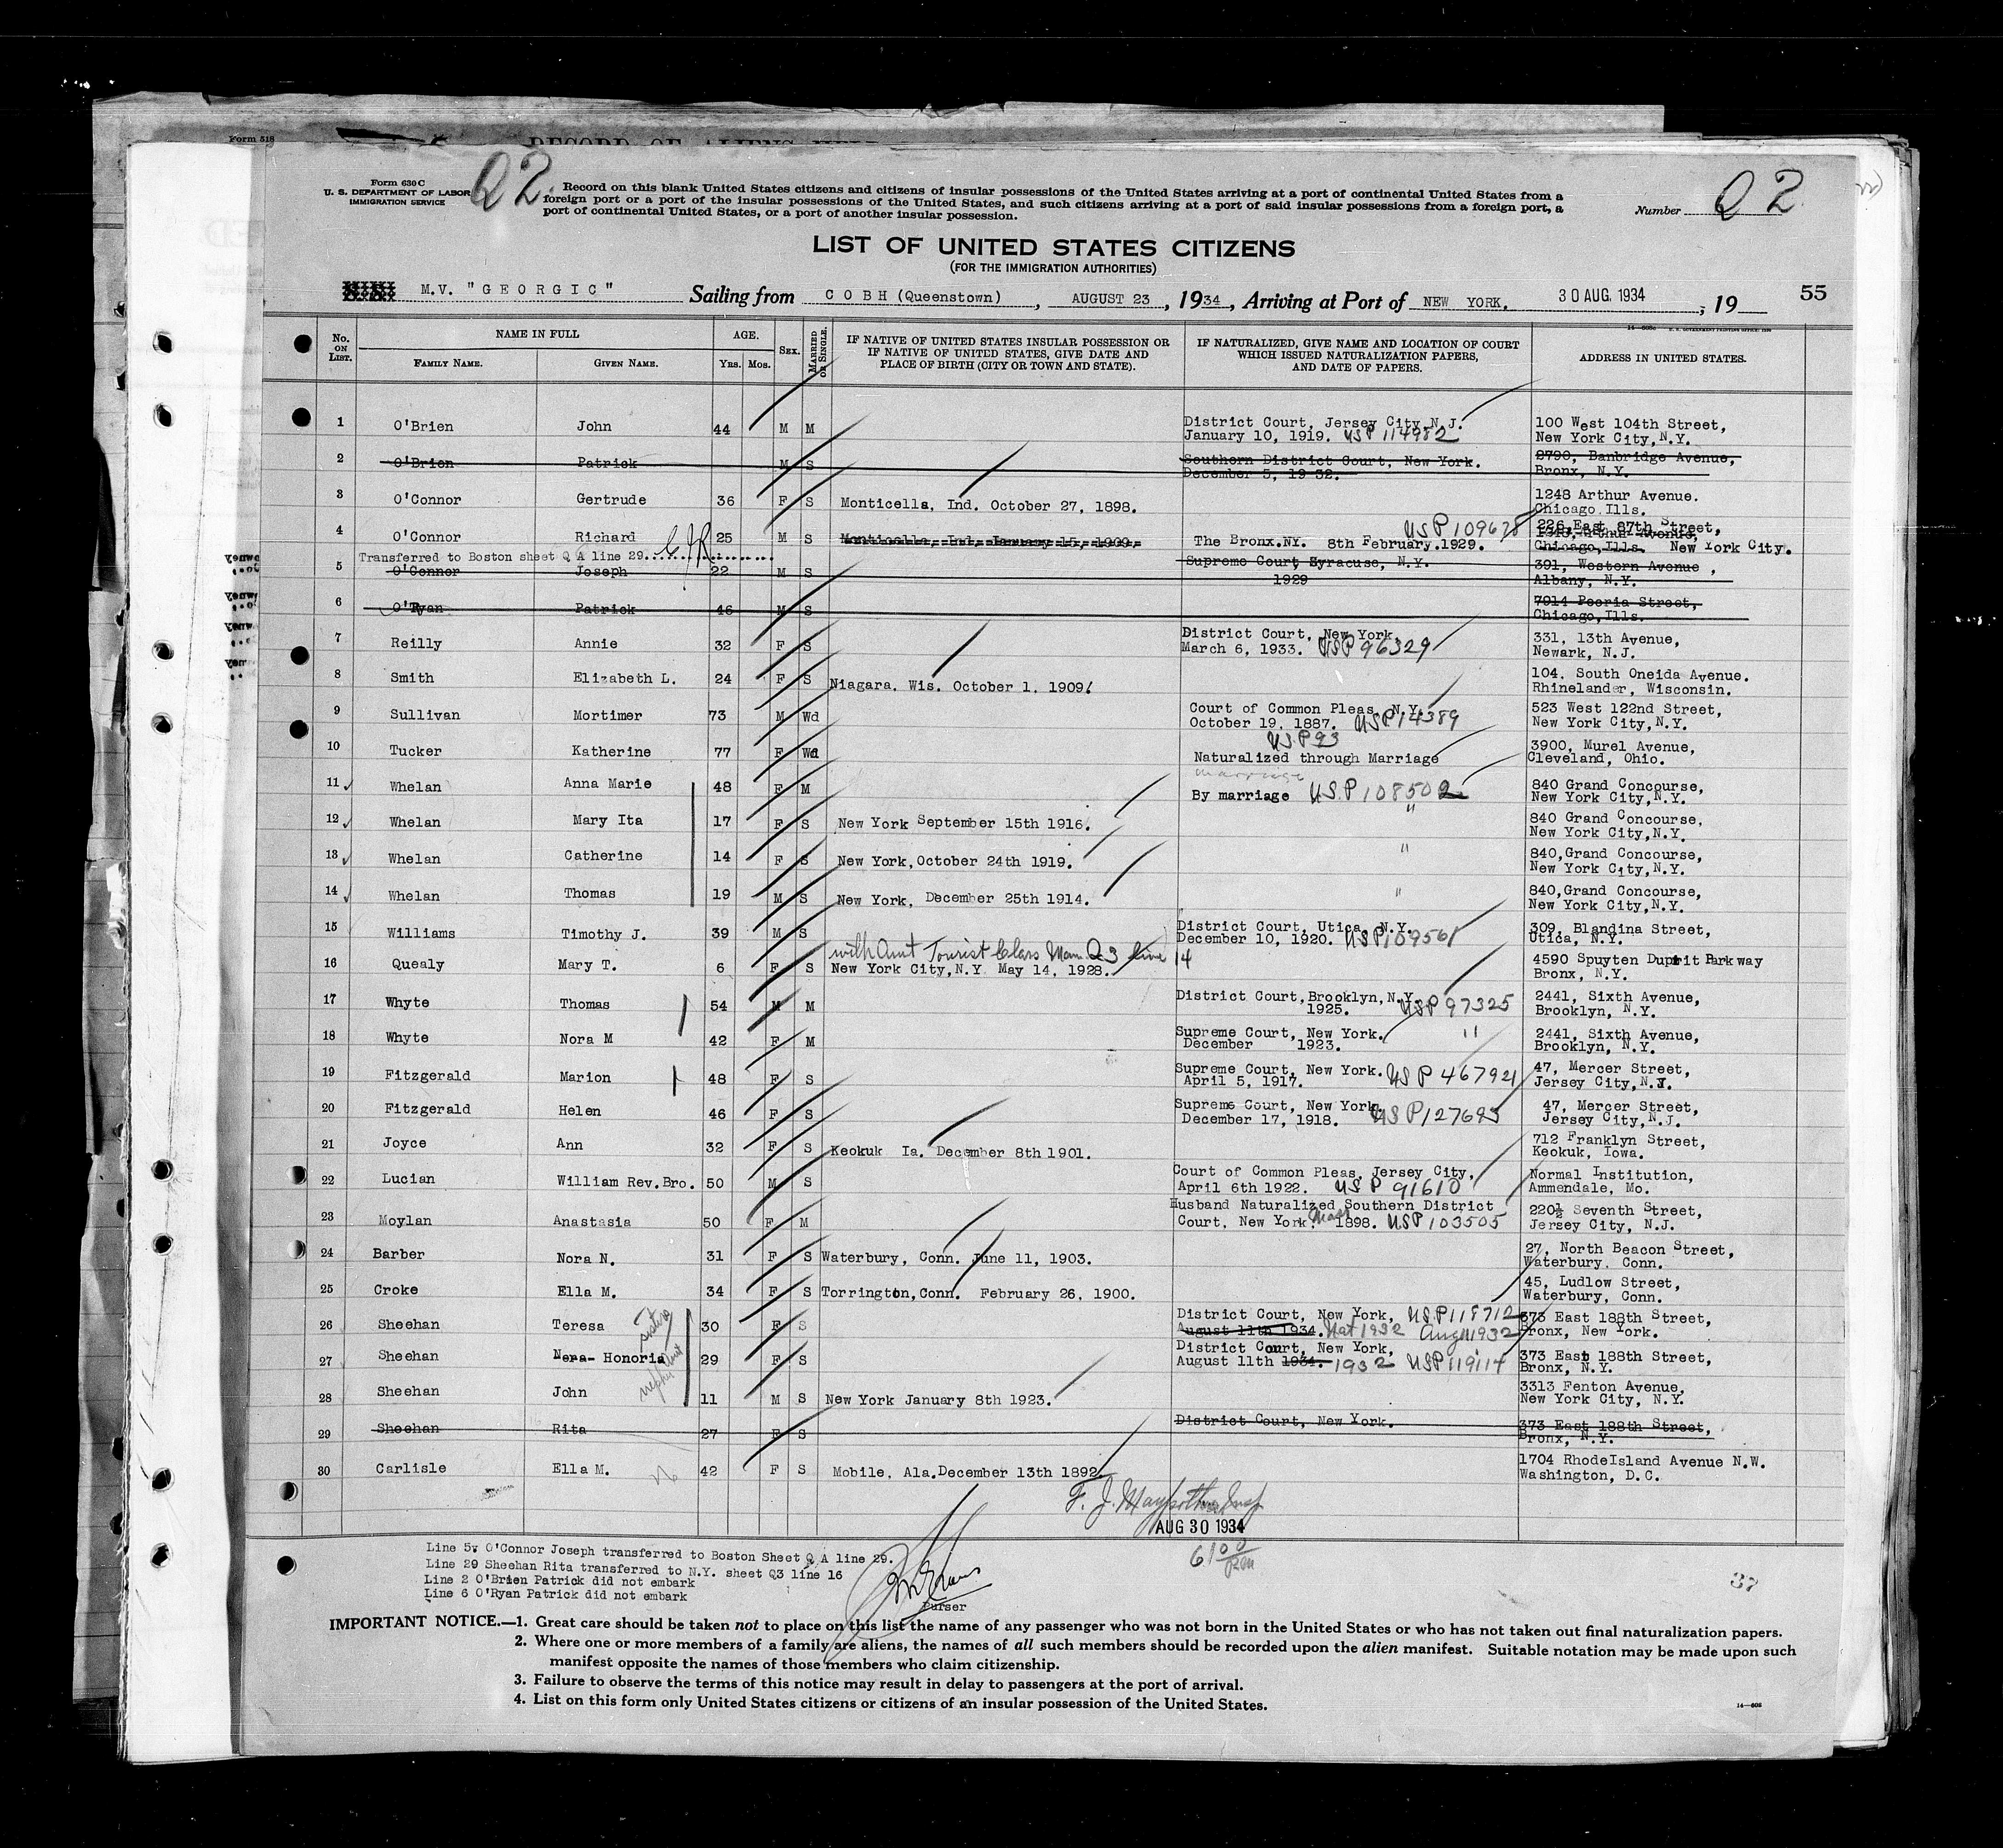 Form 518
RECORD OF ALIENS HELD
Form 630 C
U. S. DEPARTMENT OF LABOR
IMMIGRATION SERVICE
Q2
Record on this blank United States citizens and citizens of insular possessions of the United States arriving at a port of continental United States from a
foreign port or a port of the insular possessions of the United States, and such citizens arriving at a port of said insular possessions from a foreign port, a
port of continental United States, or a port of another insular possession.
Number Q 2
LIST OF UNITED STATES CITIZENS
(FOR THE IMMIGRATION AUTHORITIES)
M.V. "GEORGIC" Sailing from COBH (Queenstown), AUGUST 23, 1934, Arriving at Port of NEW YORK. 30 AUG. 1934, 19 55
No. ON LIST. NAME IN FULL FAMILY NAME. GIVEN NAME. AGE. Yrs. Mos. SEX. MARRIED OR SINGLE. IF NATIVE OF UNITED STATES INSULAR POSSESSION OR IF NATIVE OF UNITED STATES, GIVE DATE AND PLACE OF BIRTH (CITY OR TOWN AND STATE). IF NATURALIZED, GIVE NAME AND LOCATION OF COURT WHICH ISSUED NATURALIZATION PAPERS, AND DATE OF PAPERS. ADDRESS IN UNITED STATES.
1 O'Brien John 44 M M District Court, Jersey City N.J. January 10, 1919. USP 114982 100 West 104th Street, New York City, N.Y.
2 O'Brien Patrick M S Southern District Court, New York. December 5, 1932. 2790, Banbridge Avenue, Bronx, N.Y.
3 O'Connor Gertrude 36 F S Monticella, Ind. October 27, 1898. 1248 Arthur Avenue. Chicago Ills.
4 O'Connor Richard 25 M S Monticella, Ind. January 15, 1909. The Bronx.NY. 8th February.1929. USP 109678 226 East 87th Street, Chicago, Ills. New York City.
Transferred to Boston sheet Q A line 29.
5 O'Connor Joseph 22 M S Supreme Court, Syracuse, N.Y. 1929 391, Western Avenue, Albany, N.Y.
6 O'Ryan Patrick 46 M S 7014 Peoria Street, Chicago, Ills.
7 Reilly Annie 32 F S District Court, New York. March 6, 1933. USP 96329 331, 13th Avenue, Newark, N.J.
8 Smith Elizabeth L. 24 F S Niagara. Wis. October 1, 1909. 104. South Oneida Avenue. Rhinelander, Wisconsin.
9 Sullivan Mortimer 73 M Wd Court of Common Pleas, N.Y. October 19, 1887. USP 14389 523 West 122nd Street, New York City, N.Y.
10 Tucker Katherine 77 F Wd USP 93 Naturalized through Marriage 3900, Murel Avenue, Cleveland, Ohio.
marriage
11 Whelan Anna Marie 48 F M By marriage USP 108502 840 Grand Concourse, New York City, N.Y.
12 Whelan Mary Ita 17 F S New York September 15th 1916. " 840 Grand Concourse, New York City, N.Y.
13 Whelan Catherine 14 F S New York, October 24th 1919. " 840, Grand Concourse, New York City, N.Y.
14 Whelan Thomas 19 M S New York, December 25th 1914. " 840, Grand Concourse, New York City, N.Y.
15 Williams Timothy J. 39 M S District Court, Utica, N.Y. December 10, 1920. USP 109561 309, Blandina Street, Utica, N.Y.
with Aunt Tourist Class Man. Q3 line 14
16 Quealy Mary T. 6 F S New York City, N.Y. May 14, 1928. 4590 Spuyten Duprit Parkway Bronx, N.Y.
17 Whyte Thomas 54 M M District Court, Brooklyn, N.Y. 1925. USP 97325 2441, Sixth Avenue, Brooklyn, N.Y.
18 Whyte Nora M 42 F M Supreme Court, New York. December 1923. " 2441, Sixth Avenue, Brooklyn, N.Y.
19 Fitzgerald Marion 48 F S Supreme Court, New York. April 5, 1917. USP 467921 47, Mercer Street, Jersey City, N.J.
20 Fitzgerald Helen 46 F S Supreme Court, New York. December 17, 1918. USP 127693 47, Mercer Street, Jersey City, N.J.
21 Joyce Ann 32 F S Keokuk Ia. December 8th 1901. 712 Franklyn Street, Keokuk, Iowa.
22 Lucian William Rev. Bro. 50 M S Court of Common Pleas, Jersey City, April 6th 1922. USP 91610 Normal Institution, Ammendale, Mo.
23 Moylan Anastasia 50 F M Husband Naturalized Southern District Court, New York. 1898. USP 103505 220½ Seventh Street, Jersey City, N.J.
24 Barber Nora N. 31 F S Waterbury, Conn. June 11, 1903. 27, North Beacon Street, Waterbury. Conn.
25 Croke Ella M. 34 F S Torrington, Conn. February 26, 1900. 45, Ludlow Street, Waterbury, Conn.
26 Sheehan Teresa sisters 30 F S District Court, New York, USP 118712 August 11th 1934. Nat 1932 Aug 11 1932 373 East 188th Street, Bronx, New York.
27 Sheehan Nora- Honoria 29 F S District Court, New York, August 11th 1934. 1932 USP 119114 373 East 188th Street, Bronx, N.Y.
28 Sheehan John 11 M S New York January 8th 1923. 3313 Fenton Avenue, New York City, N.Y.
29 Sheehan Rita 27 F S District Court, New York. 373 East 188th Street, Bronx, N.Y.
30 Carlisle Ella M. 42 F S Mobile, Ala. December 13th 1892. 1704 RhodeIsland Avenue N.W. Washington, D.C.
AUG 30 1934
Line 5 O'Connor Joseph transferred to Boston Sheet Q A line 29.
Line 29 Sheehan Rita transferred to N.Y. sheet Q3 line 16
Line 2 O'Brien Patrick did not embark
Line 6 O'Ryan Patrick did not embark
Purser
37
IMPORTANT NOTICE.—1. Great care should be taken not to place on this list the name of any passenger who was not born in the United States or who has not taken out final naturalization papers.
2. Where one or more members of a family are aliens, the names of all such members should be recorded upon the alien manifest. Suitable notation may be made upon such
manifest opposite the names of those members who claim citizenship.
3. Failure to observe the terms of this notice may result in delay to passengers at the port of arrival.
4. List on this form only United States citizens or citizens of an insular possession of the United States.